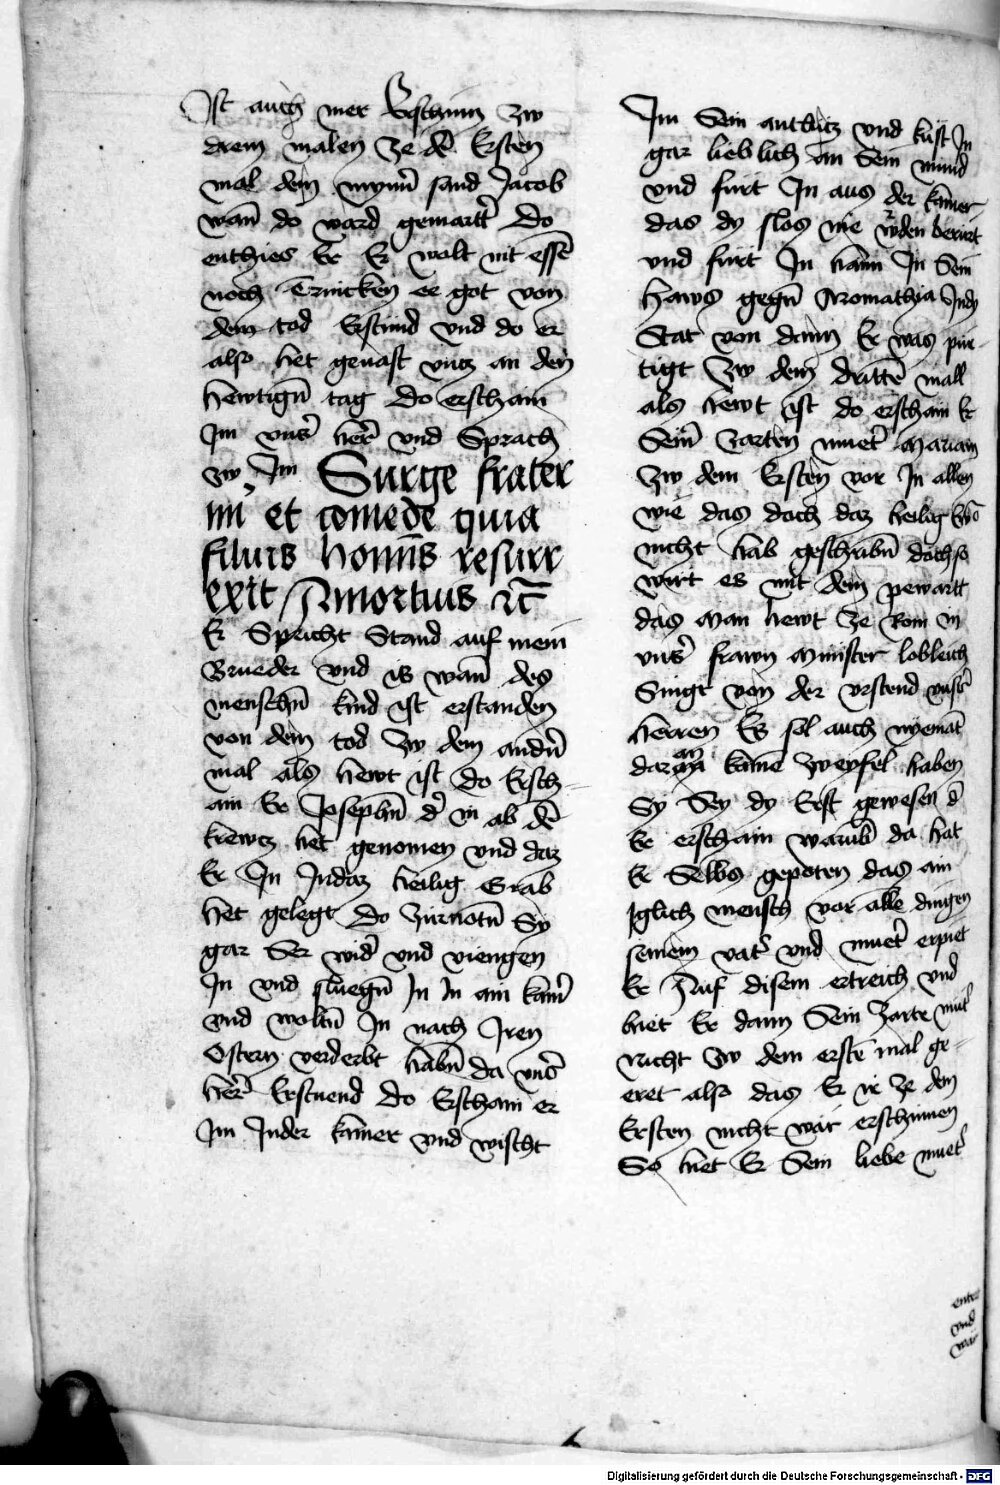 Ist auch mer Erschinn zw
drein malen ze dē Ersten
mal dem mynnˀ sand Jacob
wan̄ do ward gemarttˀ Do
enthies Er Er wolt nit essē
noch Trincken ee got von
dem tod Erstund vnd do er
also het geuast vncz an den
hewtigñ tag Do erschain
Im vnsˀ herˀ vnd Sprach
zw Im Surge frater
mi et comede quia
filius hominis resurr
exit Amortuis ꝛc̄
Er Spricht Stand auf mein
Brueder vnd is wan̄ des
menschñ kind ist erstanden
von dem tod Zw dem andñ
mal als hewt ist do Ersch-
ain Er Josephñ dˀ in ab dē
krewcz het genomen vnd daz
Er In Indaz heilig Grab
het gelegt Do Zürnotñ Sy
gar Ser widˀ vnd viengen
In vnd sluegñ In In ain kamˀ
vnd woltñ In nach Iren
Ostern verderbt habñ da vnsˀ
herˀ Erstuend Do Erschain er
Im Inder kamer vnd wischt
Im Sein antlutz vnd küst In
gar lieblich an Sein mund
vnd fürt In aus der kamer
das dy slos nie wˀden berürt
vnd fürt In haim In Sein
Haws gegñ Aromathia Indy
Stat von dann Er was pür-
tigt Zw dem drittē mall
als hewt ist do erschain Er
Seinˀ zarten muetˀ Mariam
Zw dem Ersten vor In allen
wie das doch daz heilig Ewā
nicht hab geschribñ dochso
wirt es mit dem pewartt
das Man hewt ze Rom in
vnsˀ frawn Münster lobleich
Singt von der vrstend vnsˀ
herren Es sol auch nyemāt
daran an kainē Zweyfel haben
Sy Sey dy Erst gewesen dˀ
Er erschain warūb da hat
Er Selbs gepoten das ain
Iglich mensch vor allē dingen
seinem vatˀ vnd muetˀ erpiet
Er Auf disem ertreich vnd
hiet Er dann Sein Zarte mutˀ
Nicht zw dem erstē mal ge-
eret also das Er ir ze dem
Ersten nicht wär erschinnen
So hiet Er Sein liebe muetˀ
vnd
Digitalisierung gefördert durch die Deutsche Forschungsgemeinschaft - DFG